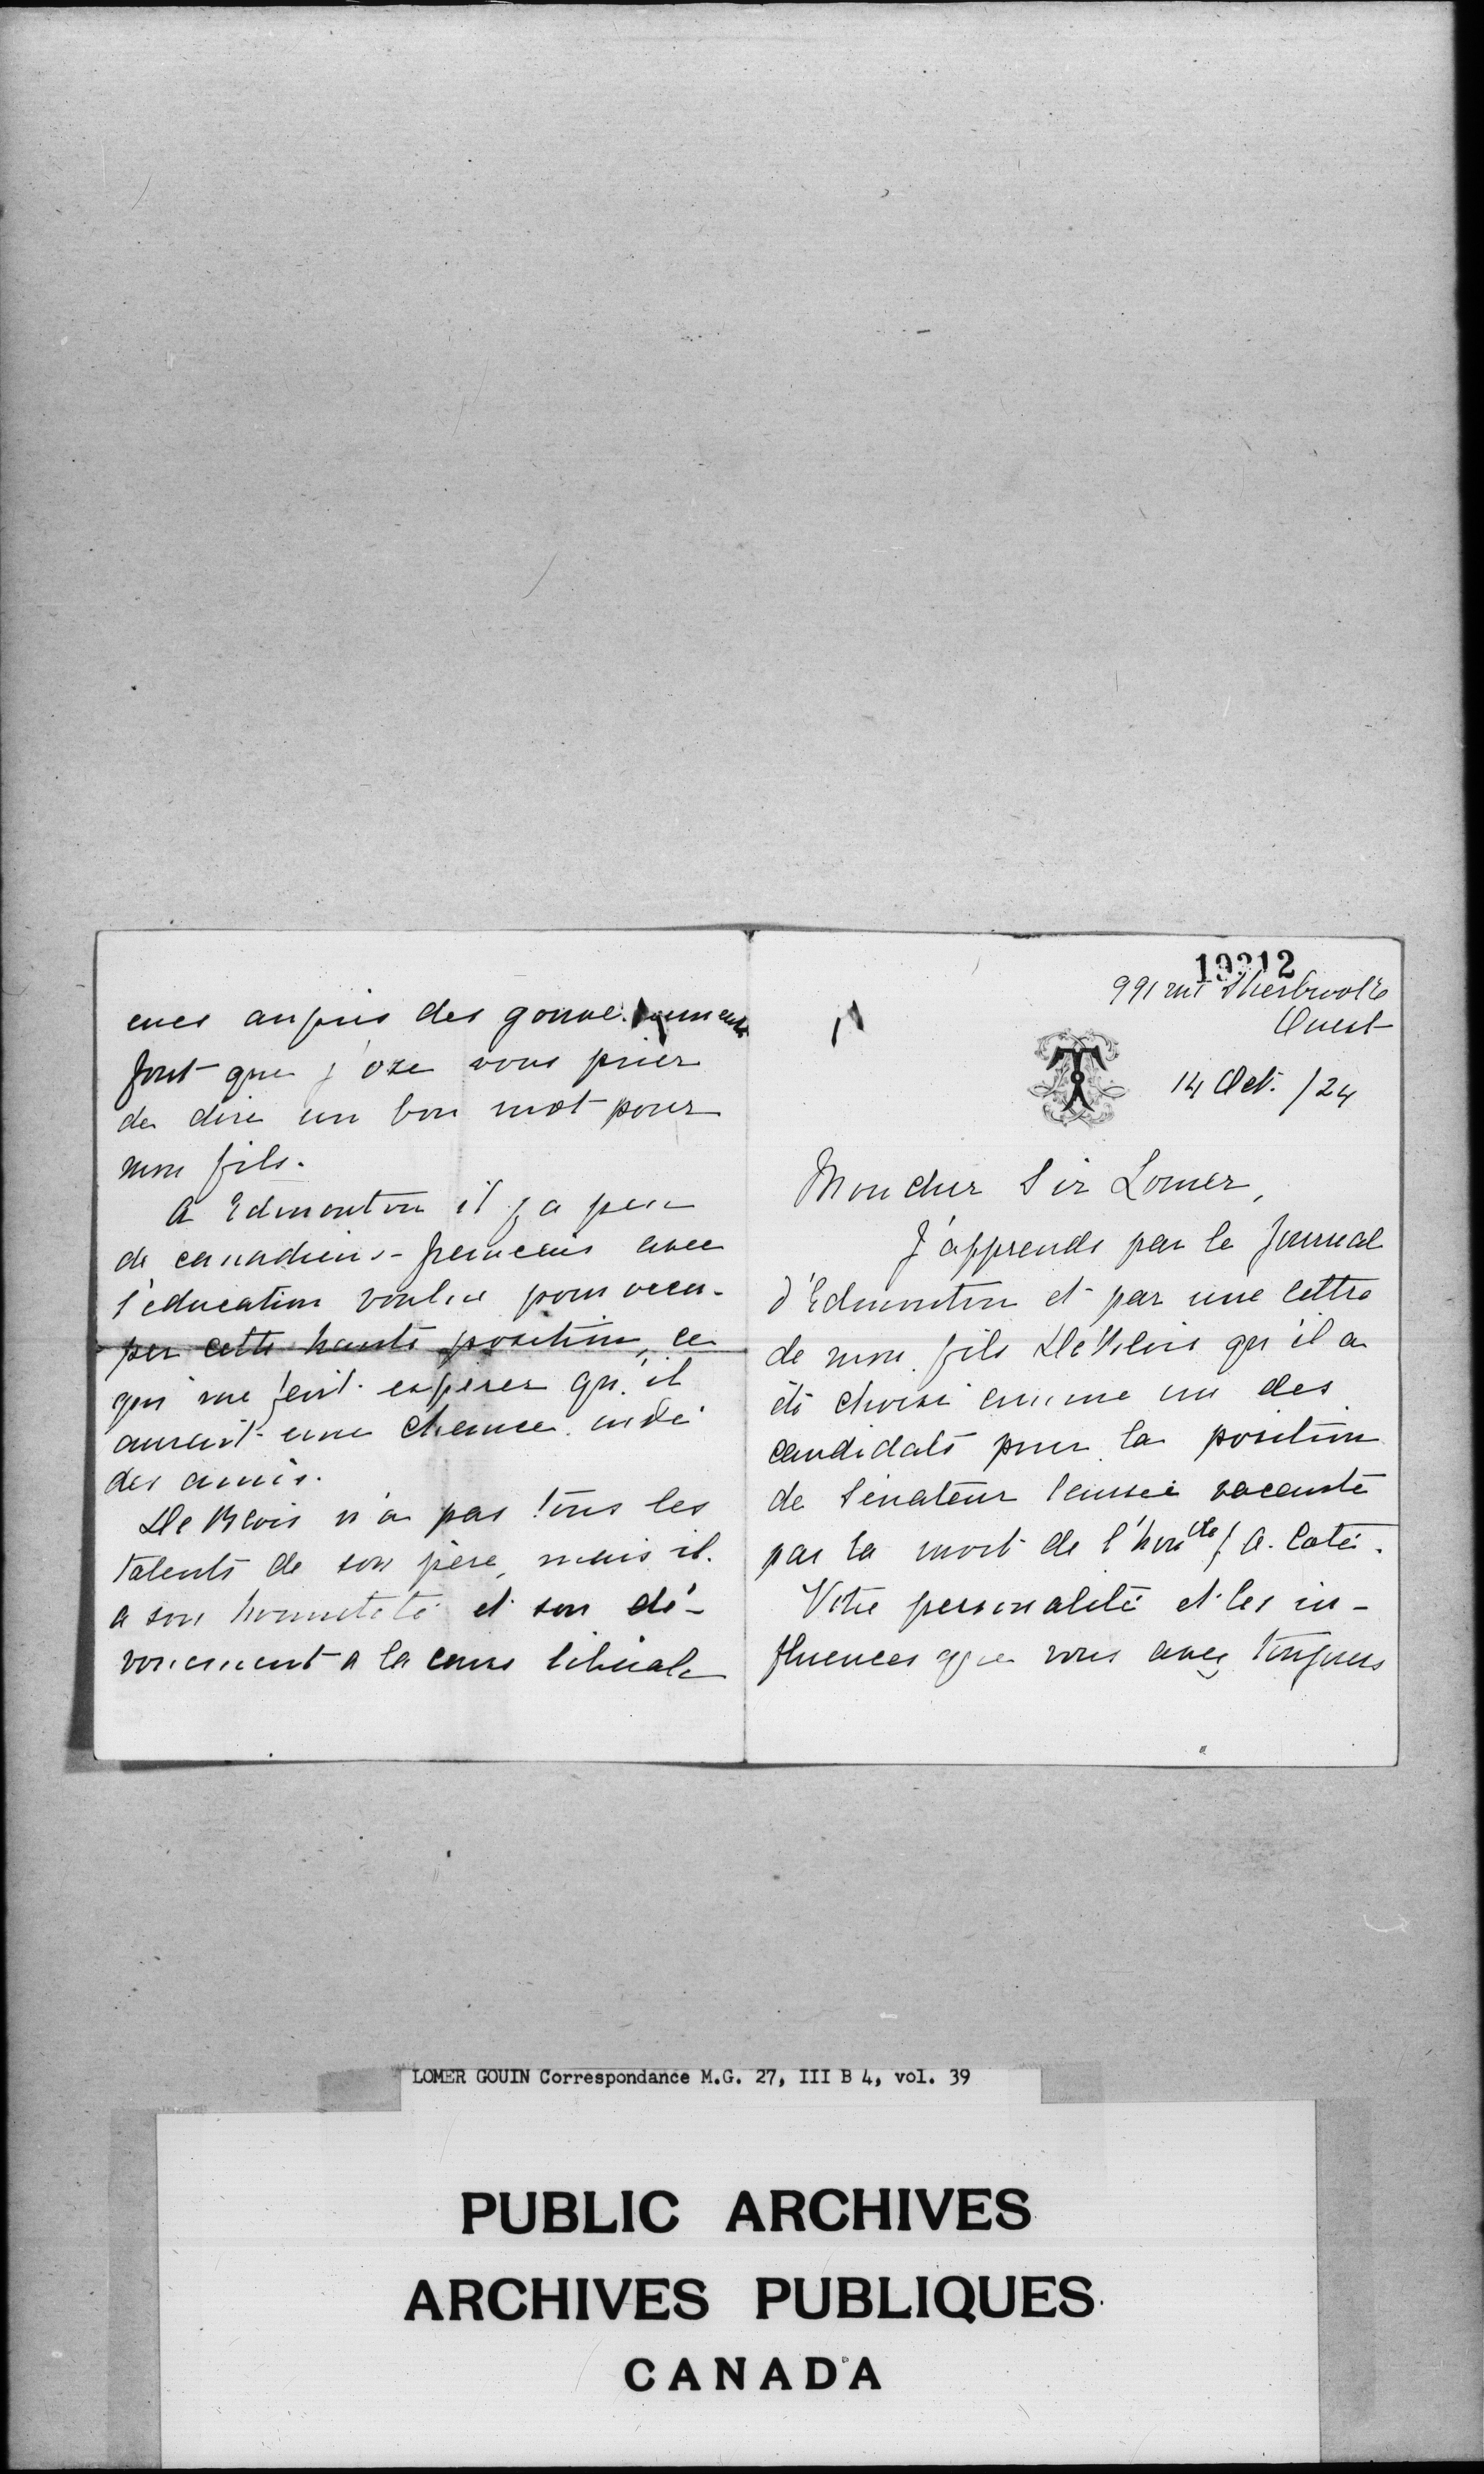 19212
991 rue Sherbrooke
Ouest
14 Oct. /24
Mon cher Sir Lomer,
J'apprends par le Journal
d'Edmonton et par une lettre
de mon fils DeBlois qu'il a
été choisi comme un des
candidats pour la position
de Sénateur laissée vacante
par la mort de l'honble J. A. Coté.
Votre personalité et les in-
fluences que vous avez toujours
eues auprès des gouvernements
font que j'ose vous prier
de dire un bon mot pour
mon fils.
A Edmonton il y a peu
de canadiens-francais avec
l'éducation voulue pour occu-
per cette haute position, ce
qui me fait espérer qu'il
aurait une chance aidé
des amis.
De Blois n'a pas tous les
talents de son père, mais il
a son honnêteté et son dé-
vouement a la cause libérale
LOMER GOUIN Correspondance M.G. 27, III B 4, vol. 39
PUBLIC ARCHIVES
ARCHIVES PUBLIQUES
CANADA